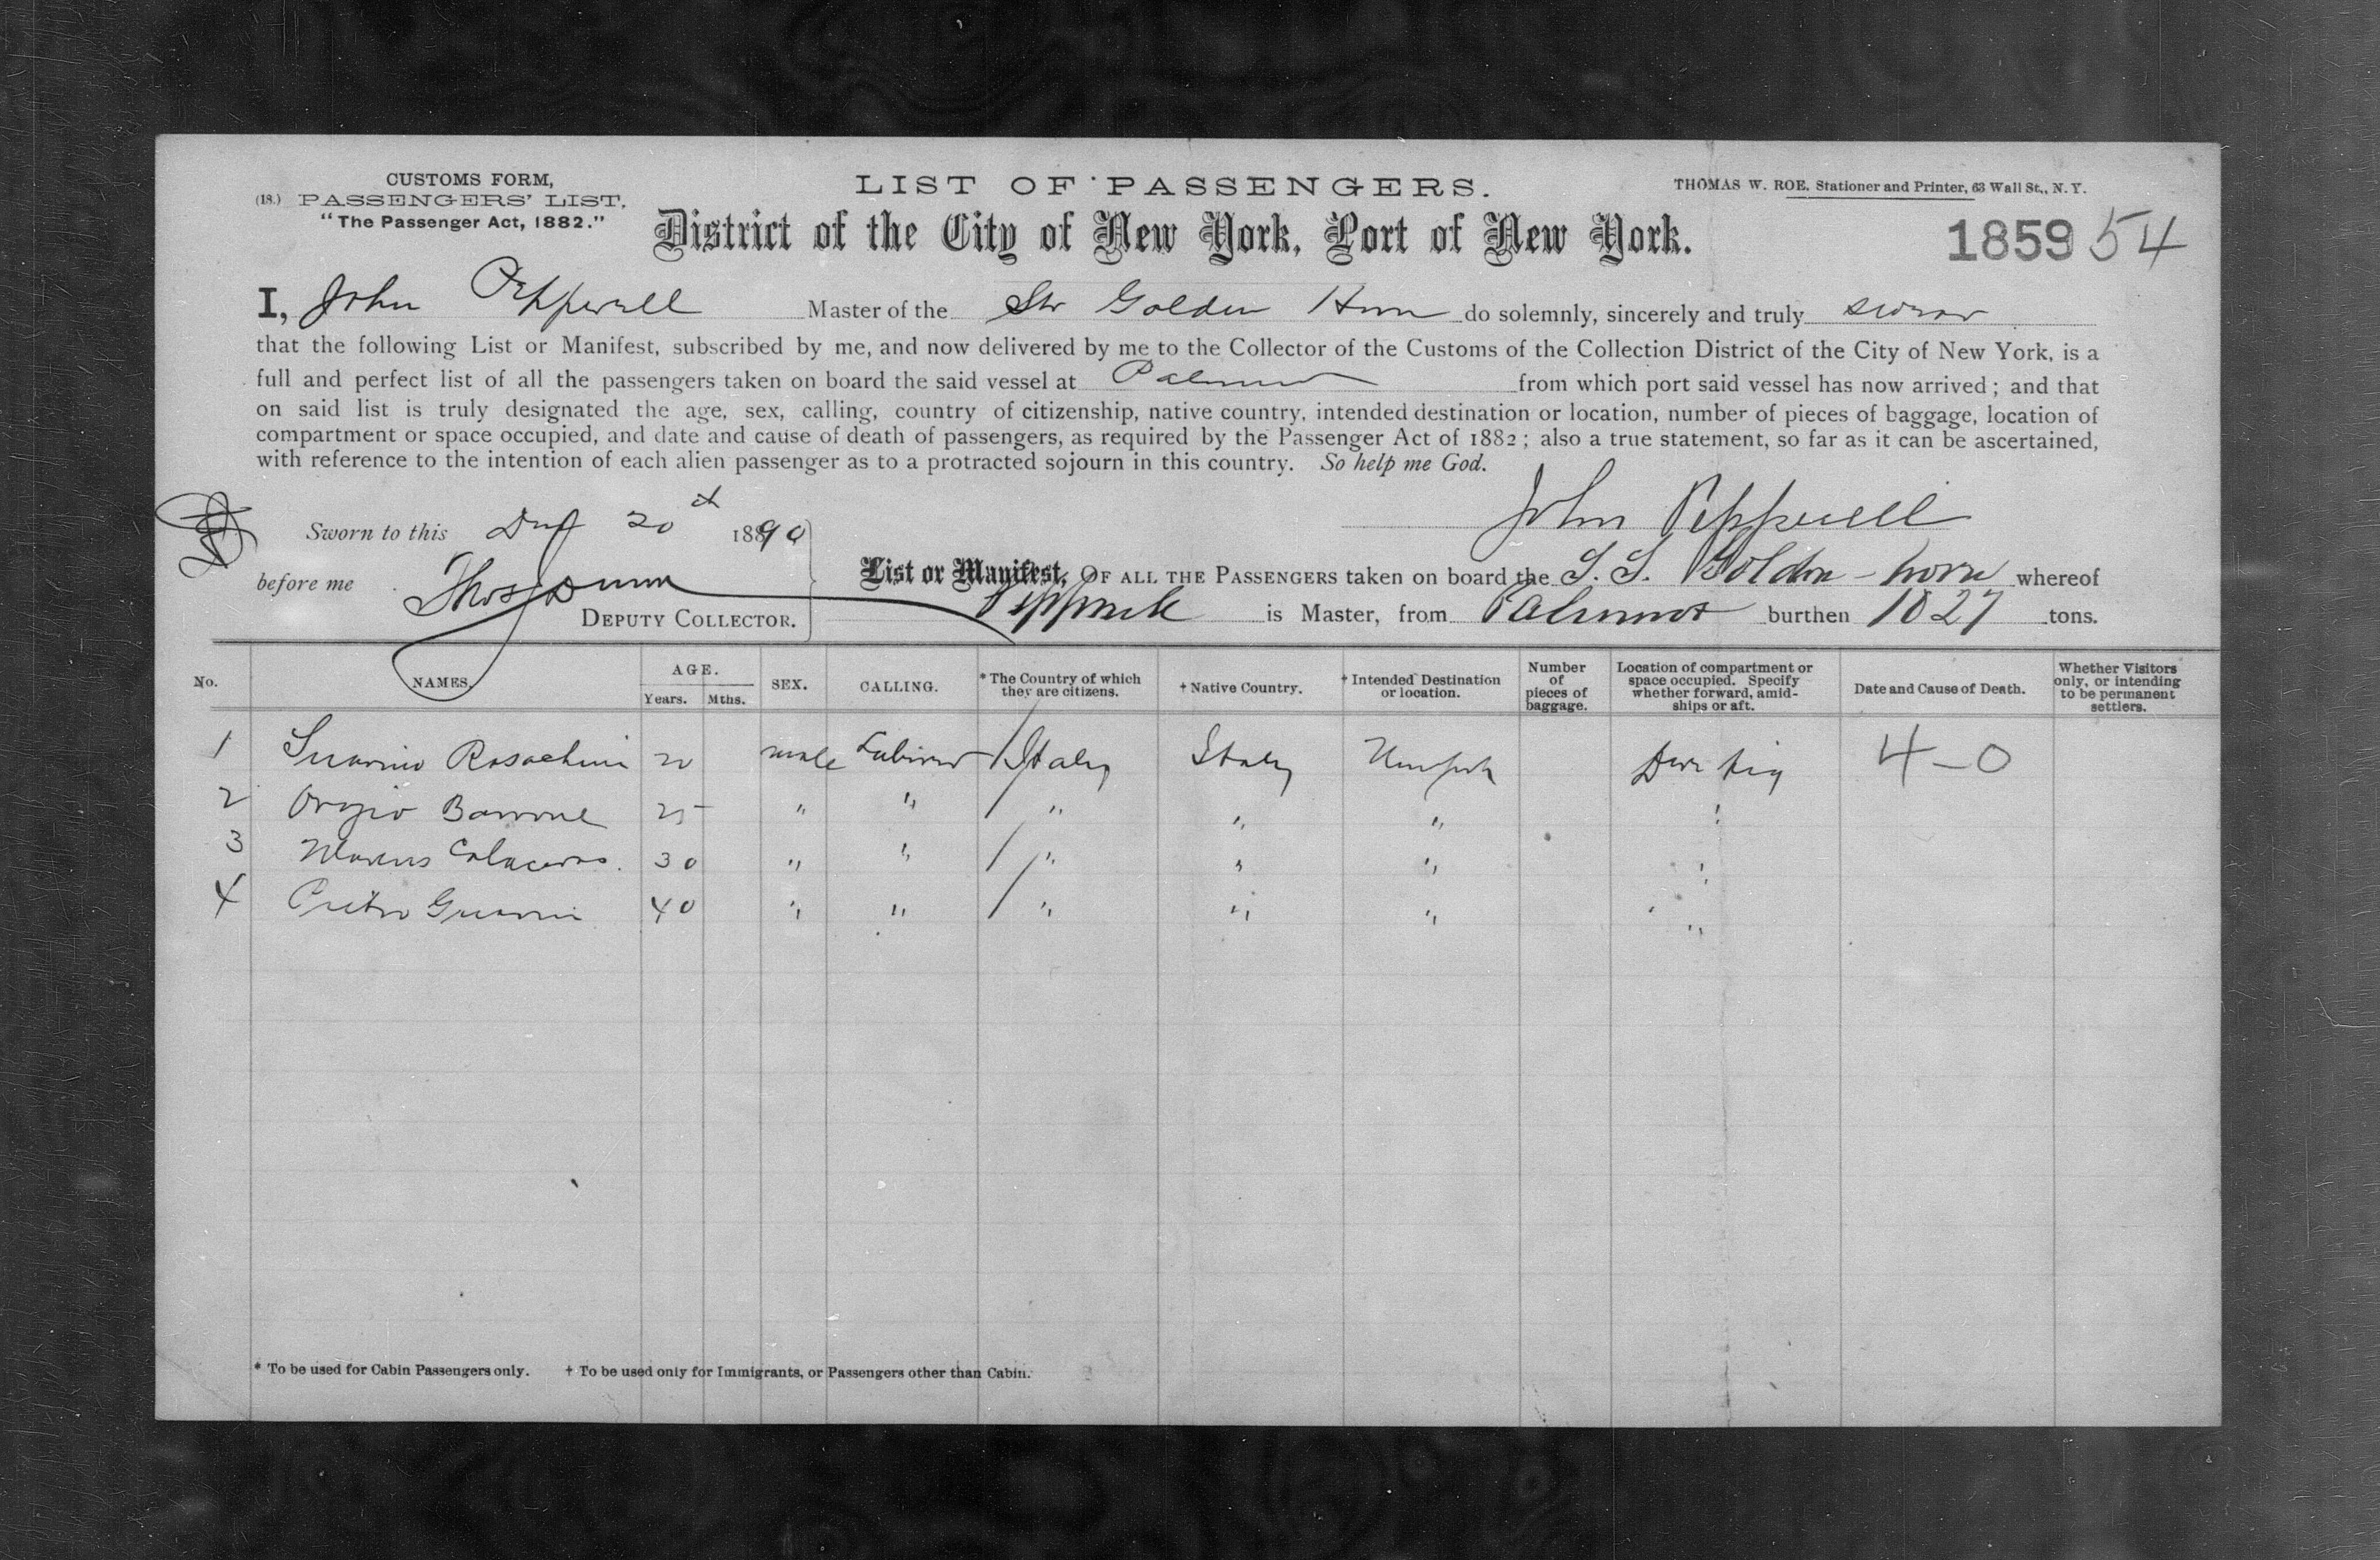 CUSTOMS FORM,
(18.) PASSENGERS' LIST,
"The Passenger Act, 1882."
LIST OF PASSENGERS.
THOMAS W. ROE, Stationer and Printer, 63 Wall St., N. Y.
District of the City of New York, Port of New York.
1859 54
I, John Pepperell Master of the Str Golden Horn do solemnly, sincerely and truly swear
that the following List or Manifest, subscribed by me, and now delivered by me to the Collector of the Customs of the Collection District of the City of New York, is a
full and perfect list of all the passengers taken on board the said vessel at from which port said vessel has now arrived; and that
on said list is truly designated the age, sex, calling, country of citizenship, native country, intended destination or location, number of pieces of baggage, location of
compartment or space occupied, and date and cause of death of passengers, as required by the Passenger Act of 1882; also a true statement, so far as it can be ascertained,
with reference to the intention of each alien passenger as to a protracted sojourn in this country. So help me God.
John Pepperell
Sworn to this 20th 1890
before me Thos Dunn
DEPUTY COLLECTOR.
List or Manifest, OF ALL THE PASSENGERS taken on board the S. S. Golden-horn whereof
is Master, from burthen 1827 tons.
No. NAMES. AGE. Years. Mths. SEX. CALLING. * The Country of which they are citizens. † Native Country. † Intended Destination or location. Number of pieces of baggage. Location of compartment or space occupied. Specify whether forward, amidships or aft. Date and Cause of Death. Whether Visitors only, or intending to be permanent settlers.
1 20 male Laborer / Italy Italy New York 4-0
2 25 " " / " " " "
3 30 " " / " " " "
4 Pietro 40 " " / " " " "
* To be used for Cabin Passengers only. † To be used only for Immigrants, or Passengers other than Cabin.